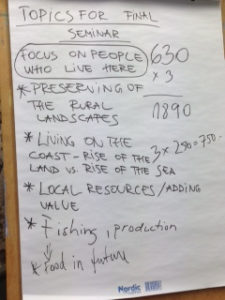 TOPICS FOR FINAL
SEMINAR
FOCUS ON PEOPLE
WHO LIVE HERE
630
x 3
1890
* PRESERVING OF
THE RURAL
LANDSCAPES
* LIVING ON THE
COAST - RISE OF THE
LAND VS. RISE OF THE SEA
3 x 250 = 750.-
* LOCAL RESOURCES/ADDING
VALUE
* Fishing, production
* Food in future
Nordic